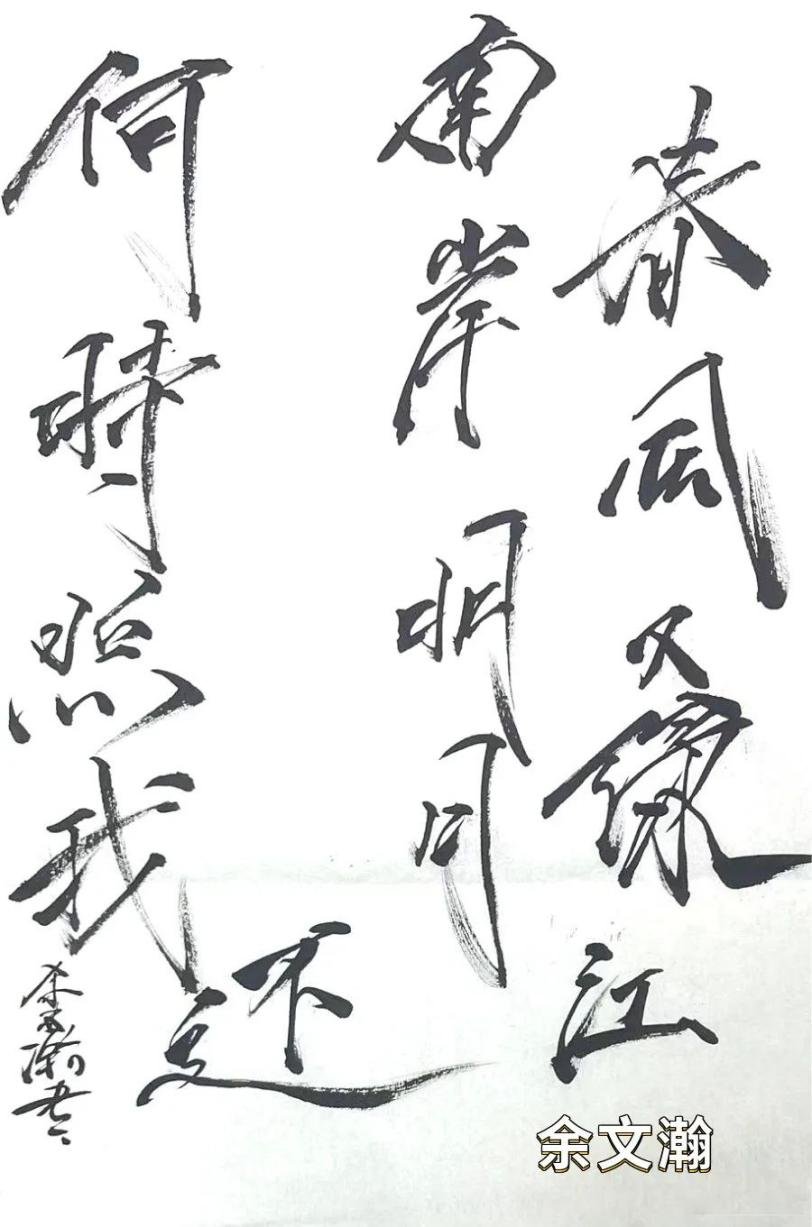 春风又绿江
南岸明月
何時照我还
余文瀚书
余文瀚